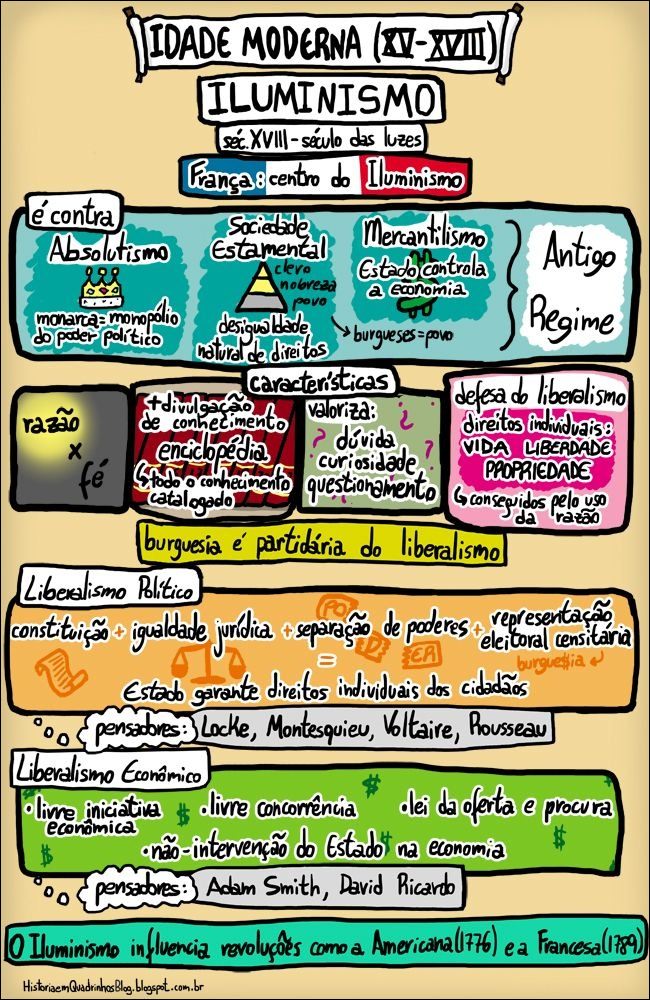 IDADE MODERNA (XV-XVIII)
ILUMINISMO
séc. XVIII - século das luzes
França: centro do Iluminismo
é contra
Absolutismo
monarca = monopólio
do poder político
Sociedade
Estamental
clero
nobreza
povo
desigualdade
natural de direitos
Mercantilismo
Estado controla
a economia
burgueses = povo
Antigo
Regime
características
razão
x
fé
+ divulgação
de conhecimento
enciclopédia
↳ todo o conhecimento
catalogado
valoriza:
dúvida
curiosidade
questionamento
defesa do liberalismo
direitos individuais:
VIDA LIBERDADE
PROPRIEDADE
↳ conseguidos pelo uso
da razão
burguesia é partidária do liberalismo
Liberalismo Político
constituição + igualdade jurídica + separação de poderes + representação
eleitoral censitária
PO
D
ER
burgue$ia
=
Estado garante direitos individuais dos cidadãos
pensadores: Locke, Montesquieu, Voltaire, Rousseau
Liberalismo Econômico
• livre iniciativa
econômica
• livre concorrência
• lei da oferta e procura
• não-intervenção do Estado na economia
pensadores: Adam Smith, David Ricardo
O Iluminismo influencia revoluções como a Americana (1776) e a Francesa (1789)
HistoriaemQuadrinhosBlog.blogspot.com.br